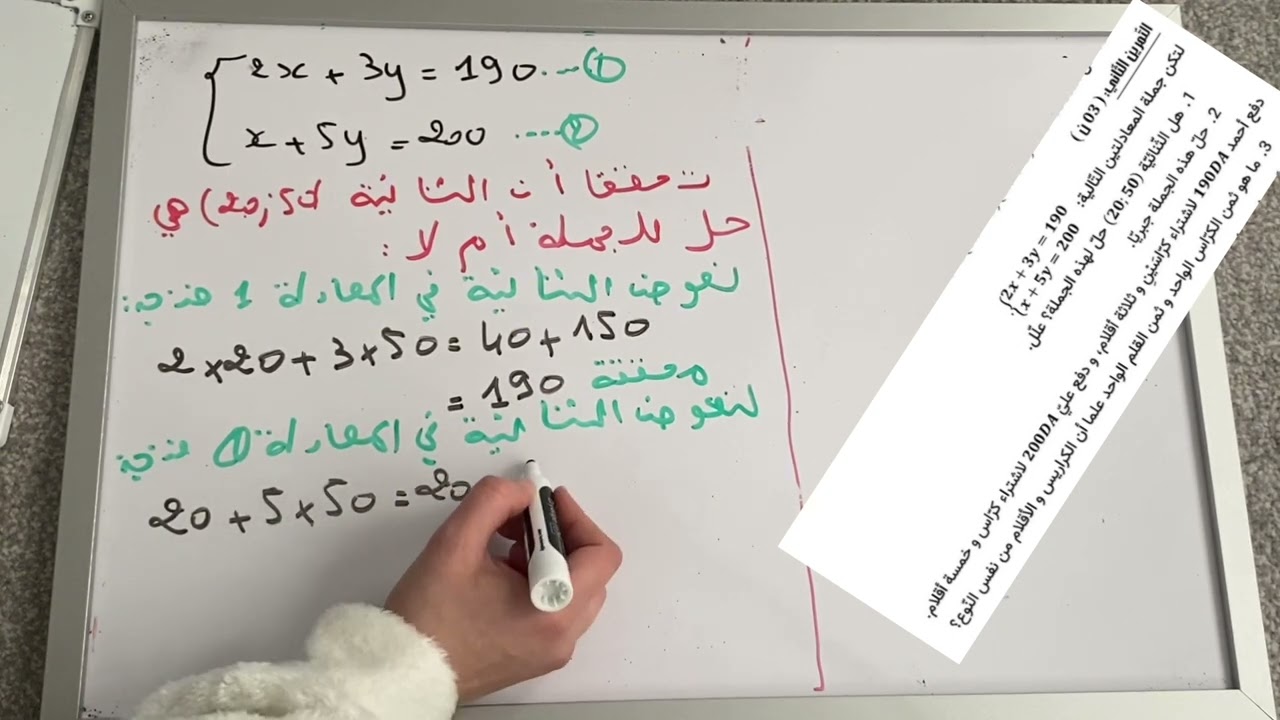 2x + 3y = 190 ---- ①
x + 5y = 200 ---- ②
تحققا أن الثنائية (20; 50) هي
حل للجملة أم لا :
لنعوض الثنائية في المعادلة 1 فنجد:
2×20 + 3×50 = 40 + 150
= 190 محققة
لنعوض الثنائية في المعادلة ② فنجد
20 + 5×50 = 20
التمرين الثاني: ( 03 ن)
لتكن جملة المعادلتين التالية:
{2x + 3y = 190
{x + 5y = 200
1. هل الثنائية (20; 50) حل لهذه الجملة؟ علّل.
2. حل هذه الجملة جبريًا.
دفع أحمد 190DA لاشتراء كرّاسين و ثلاثة أقلام، و دفع عليّ 200DA لاشتراء كرّاس و خمسة أقلام.
3. ما هو ثمن الكرّاس الواحد و ثمن القلم الواحد علما أن الكراريس و الأقلام من نفس النّوع؟